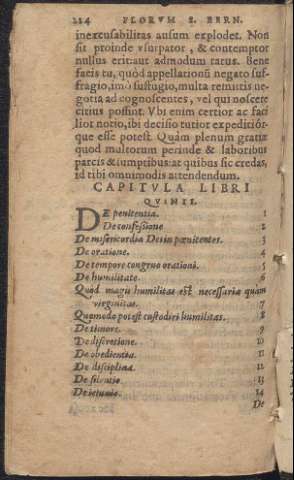 224 FLORVM S. BERN.
inexcusabilitas ausum explodet. Non
sit proinde vsurpator, & contemptor
nullus erit: aut admodum rarus. Bene
facis tu, quòd appellationũ negato suf-
fragio, imò suffugio, multa remittis ne-
gotia ad cognoscentes, vel qui noscere
citius possint. Vbi enim certior ac faci
lior notio, ibi decisio tutior expeditiór-
que esse potest. Quàm plenum gratiæ
quòd multorum perinde & laboribus
parcis & sumptibus: at quibus sic credas,
id tibi omnimodis attendendum.
CAPITVLA LIBRI
QVINTI.
DE penitentia. 1
De confessione 2
De misericordia Dei in pœnitentes. 3
De oratione. 4
De tempore congruo orationi. 5
De humilitate 6
Quòd magis humilitas est necessaria quàm
virginitas. 7
Quomodo potest custodiri humilitas. 8
De timore. 9
De discretione. 10
De obedientia. 11
De disciplina. 12
De silentio 13
De ieiunio. 14
De